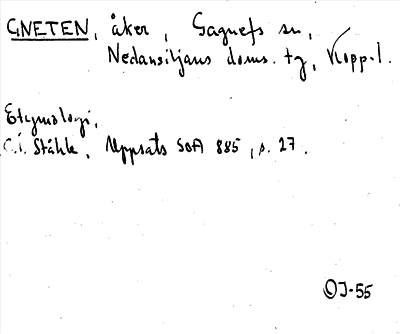 GNETEN, åker, Gagnefs sn,
Nedansiljans doms. tg, Kopp. l.
Etymologi,
C.I. Ståhle, Uppsats SOA 885, s. 27.
OJ-55